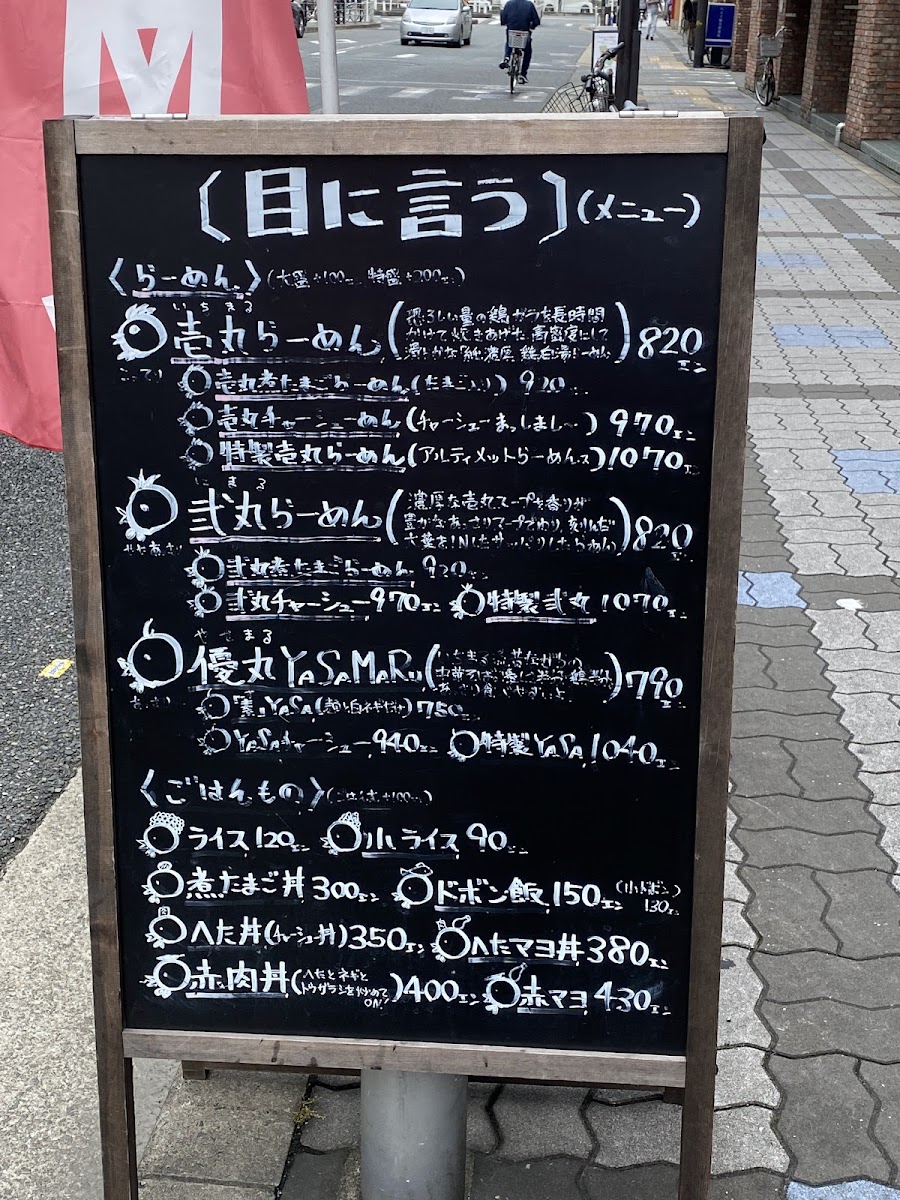 M
〔目に言う〕(メニュー)
〈らーめん〉(大盛+100エン 特盛+200エン)
いちまる
壱丸らーめん(恐ろしい量の鶏ガラを長時間
かけて炊きあげた高密度にして
濃厚 鶏白湯らーめん)820エン
こってり
壱丸煮たまごらーめん(たまご入り) 920エン
壱丸チャーシューめん(チャーシューまっしまし〜)970エン
特製壱丸らーめん(アルティメットらーめんス)1070エン
にまる
弐丸らーめん(濃厚な壱丸スープを香りが
豊かなあっさりスープでわり、刻んだ
大葉をINしたサッパリしたらーめん)820エン
弐丸煮たまごらーめん 920エン
弐丸チャーシュー970エン 特製弐丸1070エン
やさまる
優丸YASAMARU 790エン
「素」YASA(麺と白ネギだけ)750エン
YASAチャーシュー940エン 特製YASA1040エン
〈ごはんもの〉
ライス120エン 小ライス90エン
煮たまご丼300エン ドボン飯150エン(小ドボン)
130エン
へた丼(チャーシュー丼)350エン へたマヨ丼380エン
赤肉丼(へたとネギと
トウガラシを炒めて
ON!)400エン 赤マヨ430エン